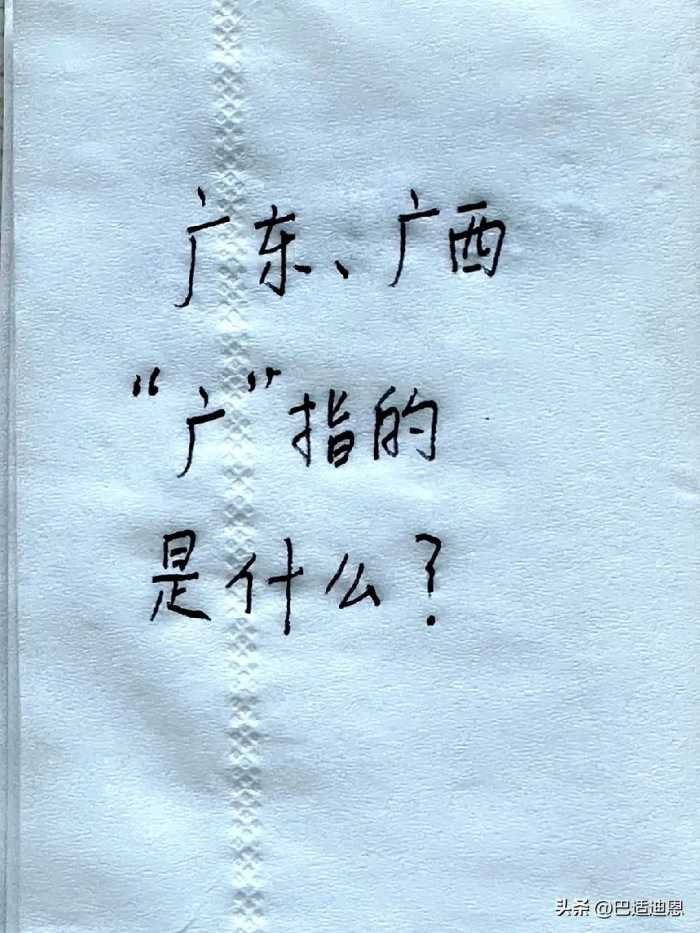 广东、广西
“广”指的
是什么？
头条 @巴适迪恩